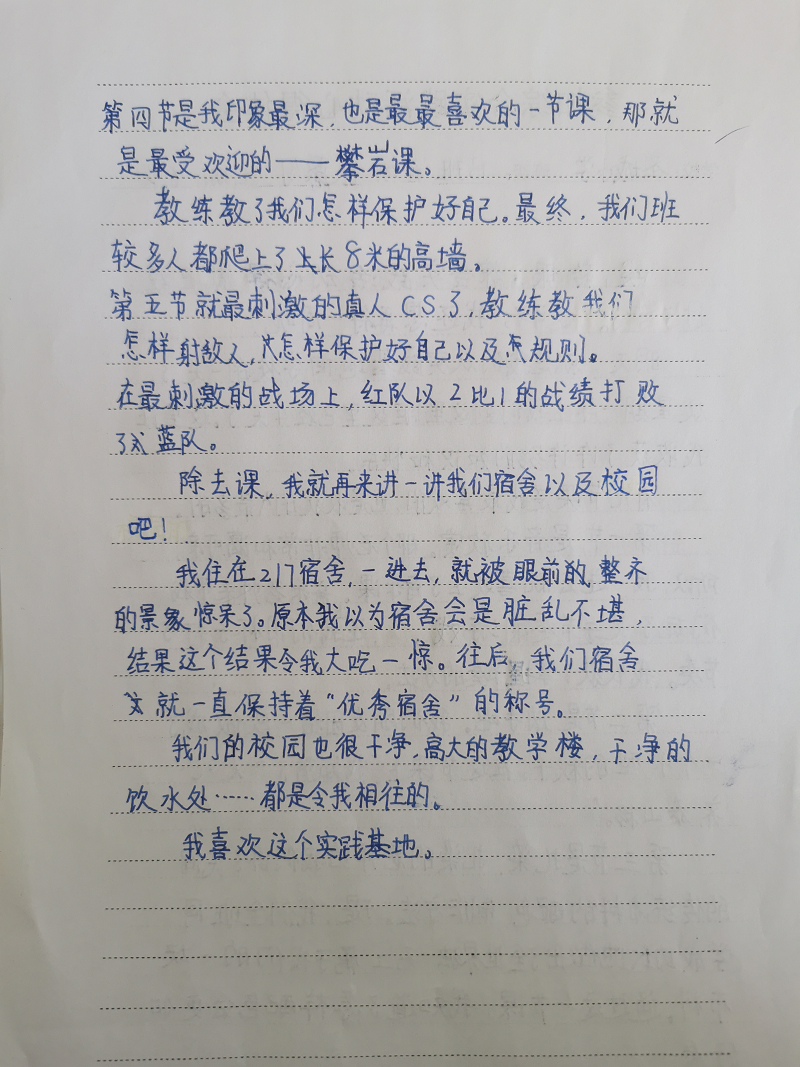 第四节是我印象最深，也是最最喜欢的一节课，那就
是最受欢迎的——攀岩课。
教练教了我们怎样保护好自己。最终，我们班
较多人都爬上了长8米的高墙。
第五节就最刺激的真人CS了，教练教我们
怎样射敌人，怎样保护好自己以及规则。
在最刺激的战场上，红队以2比1的战绩打败
了蓝队。
除去课，我就再来讲一讲我们宿舍以及校园
吧！
我住在217宿舍，一进去，就被眼前的整齐
的景象惊呆了。原本我以为宿舍会是脏乱不堪，
结果这个结果令我大吃一惊。往后，我们宿舍
就一直保持着“优秀宿舍”的称号。
我们的校园也很干净，高大的教学楼，干净的
饮水处……都是令我相往的。
我喜欢这个实践基地。